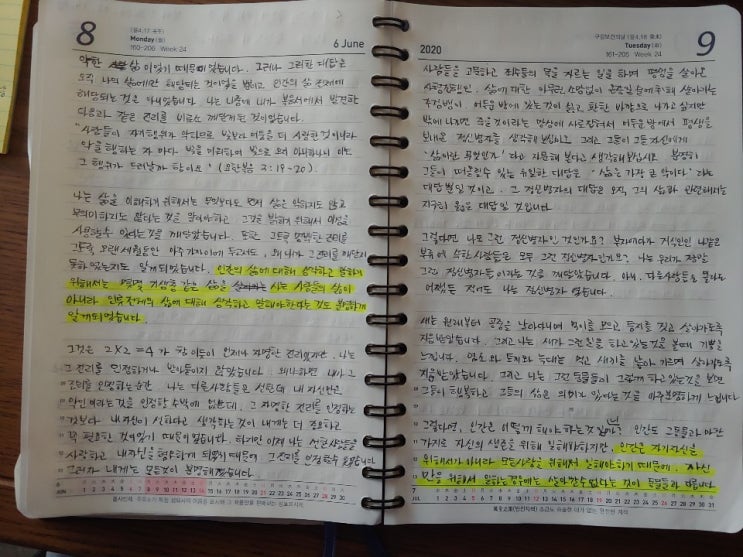 8
(음4.17 기유)
Monday (월)
160-206 Week 24
6 June
악한 삶이었기 때문이었습니다. 그러나 그러한 대답은
오직 나의 삶에만 해당되는 것이었을 뿐이고 인간의 삶 전체에
해당되는 것은 아니었습니다. 나는 나중에 내가 복음서에서 발견한
다음과 같은 진리를 비로소 깨닫게 된 것이었습니다.
"사람들이 자기 행위가 악하므로 빛보다 어둠을 더 사랑한 것이니라
악을 행하는 자마다 빛을 미워하여 빛으로 오지 아니하나니 이는
그 행위가 드러날까 함이요" (요한복음 3:19~20).
나는 삶을 이해하기 위해서는 무엇보다도 먼저 삶은 악하지도 않고
무의미하지도 않다는 것을 알아야하고 그것을 밝히기 위해서 이성을
사용할 수 있다는 것을 깨달았습니다. 또한 그토록 명백한 진리를
그토록 오랜 세월동안 아주 가까이에 두고서도, 왜 나는 그 진리를 깨닫지
못하 있었는지도 알게 되었습니다. 인간의 삶에 대해 생각하고 말하기
위해서는 기생충 같은 삶을 사는 사람들의 삶이
아니라 인류 전체의 삶에 대해 생각하고 말해야 한다는 것도 분명하게
알게 되었습니다.
그것은 2×2=4가 참이듯이 언제나 자명한 진리였지만, 나는
그 진리를 인정하거나 받아들이지 않았습니다. 왜냐하면 내가 그
진리를 인정하는 순간 나는 다른 사람들은 선한데 내 자신만은
악인이라는 것을 인정할 수 밖에 없는데, 그 자명한 진리를 인정하는
것보다 내 자신이 선하다고 생각하는 것이 내게는 더 중요하고
꼭 필요한 것이었기 때문이었습니다. 하지만 이제 나는 선한 사람들을
사랑하고 내 자신을 혐오하게 되었기 때문에, 그 진리를 인정할 수 있었습니다.
그러자 내게는 모든 것이 분명해졌습니다.
JUN 1 2 3 4 5 6 7 8 9 10 11 12 13 14 15 16 17 18 19 20 21 22 23 24 25 26 27 28 29 30
2020
구강보건의날 (음4.18 경술)
Tuesday (화)
161-205 Week 24
9
사람들을 고문하고 죄수들의 목을 자르는 일을 하며 평생을 살아온
사형집행인, 삶에 대한 아무런 소망없이 온종일 술에 취해 살아가는
주정뱅이, 어두운 방에 갇혀 있는 것이 싫고 환한 바깥으로 나가고 싶지만
밖에 나가면 죽을 것이라는 망상에 사로잡혀서 어두운 방에서 평생을
보내온 정신병자를 생각해 보십시오. 그리고 그들이 그들 자신에게
'삶이란 무엇인가' 라고 자문해 본다고 생각해 보십시오. 분명히
그들이 떠올릴 수 있는 유일한 대답은 '삶은 가장 큰 악이다' 라는
대답뿐일 것이고, 그 정신병자의 대답은 오직, 그의 삶과 관련해서는
지극히 옳은 대답일 것입니다.
그렇다면 나도 그런 정신병자인 것인가요? 부자이거나 지식인인 나 같은
부류에 속한 사람들은 모두 그런 정신병자인가요? 나는 우리가 정말
그런 정신병자들이라는 것을 깨달았습니다. 아니, 다른 사람들은 몰라도
어쨌든 적어도 나는 정신병자였습니다.
새는 원래부터 공중을 날아다니며 먹이를 모으고 둥지를 짓고 살아가도록
지음받았습니다. 그래서 나는 새가 그런 일을 하고 있는 것을 볼 때에 기쁨을
느낍니다. 염소와 토끼와 늑대는 먹고 새끼를 낳아 기르며 살아가도록
지음받았습니다. 그래서 나는 그런 동물들이 그렇게 하고 있는 것을 보면
그들이 행복하고 그들의 삶은 의미가 있다는 것을 아주 분명하게 느낍니다.
그렇다면, 인간은 어떻게 해야 하는 것일까? 인간도 그 동물들과 마찬
가지로 자신의 생존을 위해 일해야 하지만, 인간은 자기 자신을
위해서가 아니라 모든 사람을 위해서 일해야 하기 때문에, 자신
만을 위해서 일하는 경우에는 살아갈 수 없다는 것이 동물들과 다릅니다.
7 JUL 1 2 3 4 5 6 7 8 9 10 11 12 13 14 15 16 17 18 19 20 21 22 23 24 25 26 27 28 29 30 31